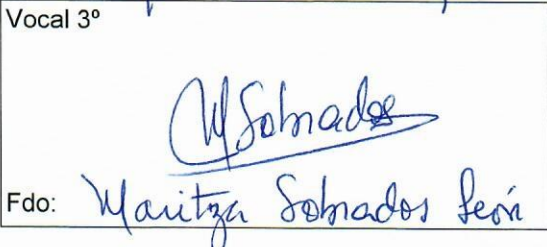 Vocal 3º
M Sobrados
Fdo: Maritza Sobrados León